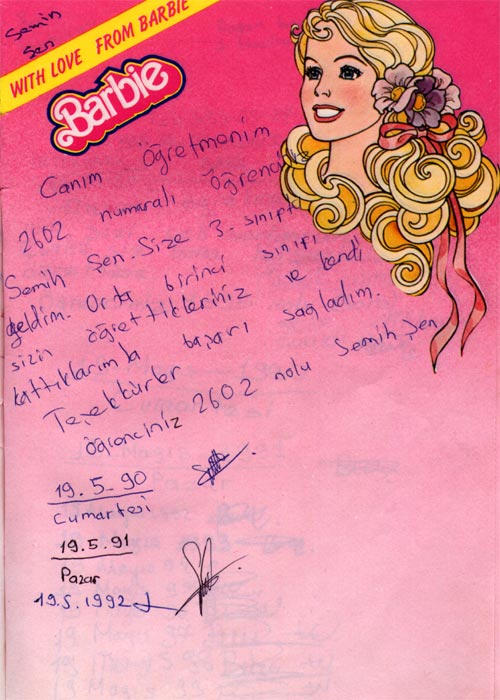 Semih
Şen
WITH LOVE FROM BARBIE
Barbie
Canım öğretmenim
2602 numaralı öğrenciniz
Semih Şen. Size 3. sınıfta
geldim. Orta birinci sınıfı
sizin öğrettikleriniz ve kendi
kattıklarımla başarı sağladım.
Teşekkürler
öğrenciniz 2602 nolu Semih Şen
19.5.90
Cumartesi
19.5.91
Pazar
19.5.1992